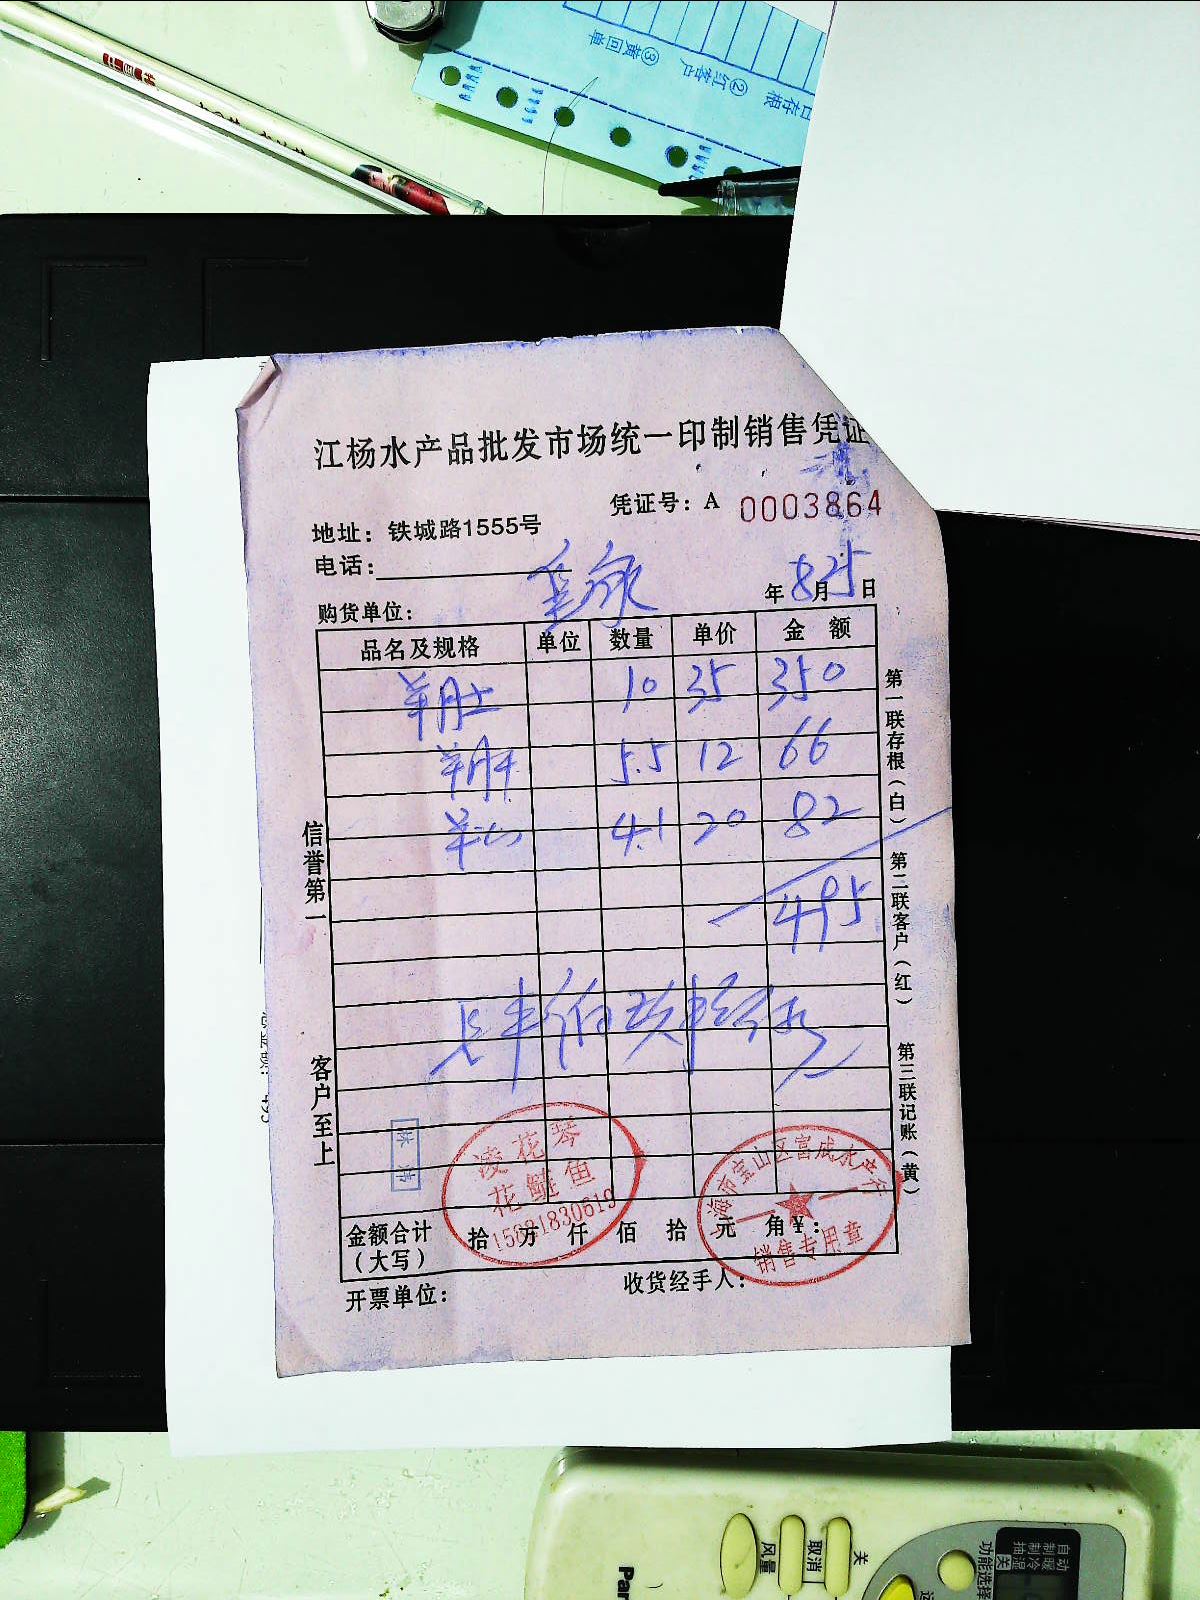 ③黄回单
②红客户
江杨水产品批发市场统一印制销售凭证
凭证号：A 0003864
地址：铁城路1555号
电话：
年8月25日
购货单位：
品名及规格 单位 数量 单价 金 额
羊肚 10 35 350
羊肝 5.5 12 66
羊心 4.1 20 82
495
信誉第一
客户至上
第一联存根（白）
第二联客户（红）
第三联记账（黄）
凌花琴
花鲢鱼
上海市宝山区富成水产行
销售专用章
金额合计（大写） 拾 万 仟 佰 拾 元 角 ¥：
开票单位：
收货经手人：
关
取消
风量
功能选择
自动